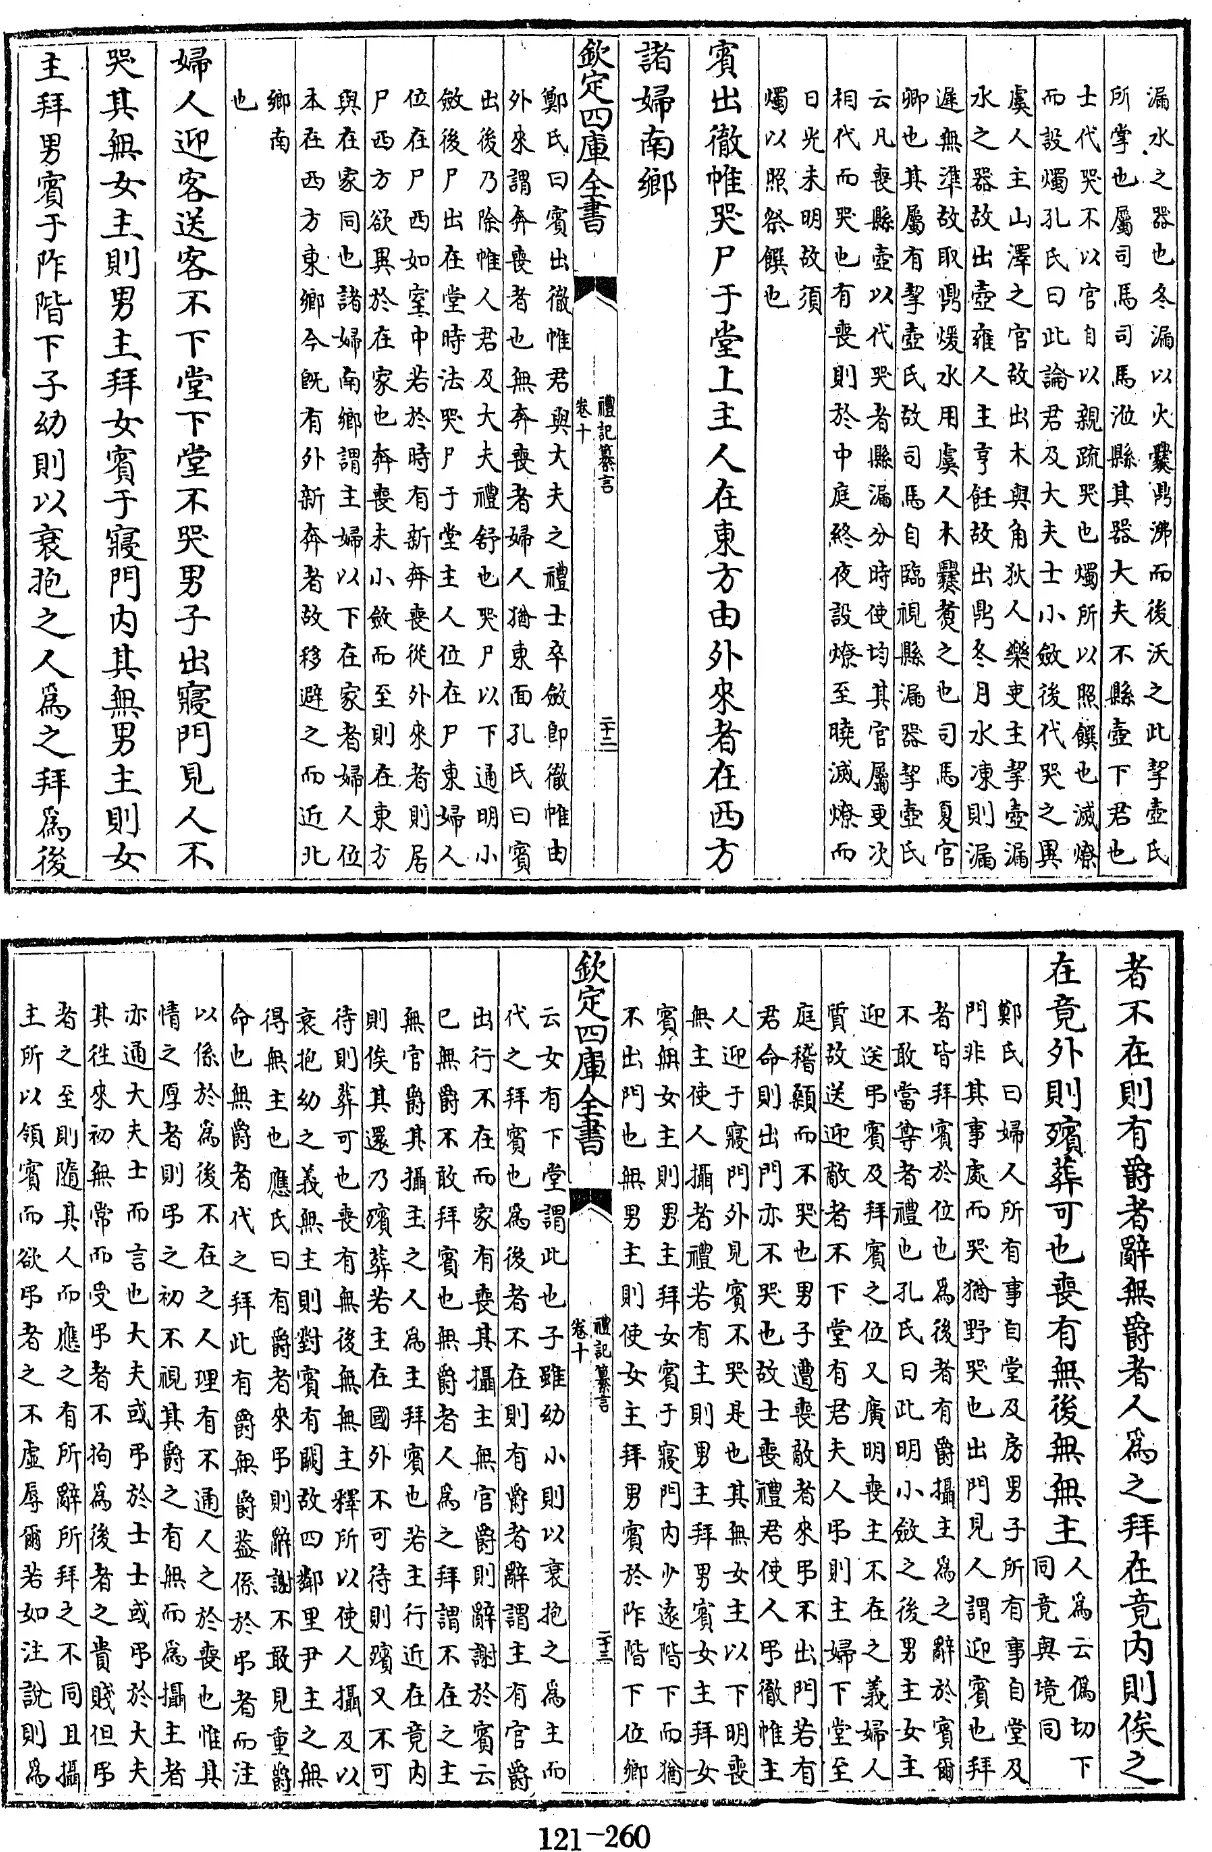 漏水之器也冬漏以火爨鼎沸而後沃之此挈壺氏
所掌也屬司馬司馬涖縣其器大夫不縣壺下君也
士代哭不以官自以親疏哭也燭所以照饌也滅燎
而設燭孔氏曰此論君及大夫士小斂後代哭之異
虞人主山澤之官故出木與角狄人樂吏主挈壺漏
水之器故出壺雍人主亨飪故出鼎冬月水凍則漏
遲無準故取鼎煖水用虞人木爨煑之也司馬夏官
卿也其屬有挈壺氏故司馬自臨視縣漏器挈壺氏
云凡喪縣壺以代哭者縣漏分時使均其官屬更次
相代而哭也有喪則於中庭終夜設燎至曉滅燎而
日光未明故須
燭以照祭饌也
賓出徹帷哭尸于堂上主人在東方由外來者在西方
諸婦南鄉
欽定四庫全書
禮記纂言
卷十
二十二
鄭氏曰賓出徹帷君與大夫之禮士卒斂即徹帷由
外來謂奔喪者也無奔喪者婦人猶東面孔氏曰賓
出後乃除帷人君及大夫禮舒也哭尸以下通明小
斂後尸出在堂時法哭尸于堂主人位在尸東婦人
位在尸西如室中若於時有新奔喪從外來者則居
尸西方欲異於在家也奔喪未小斂而至則在東方
與在家同也諸婦南鄉謂主婦以下在家者婦人位
本在西方東鄉今既有外新奔者故移避之而近北
鄉南
也
婦人迎客送客不下堂下堂不哭男子出寢門見人不
哭其無女主則男主拜女賓于寢門内其無男主則女
主拜男賓于阼階下子幼則以衰抱之人為之拜為後
者不在則有爵者辭無爵者人為之拜在竟内則俟之
在竟外則殯葬可也喪有無後無無主
人為云偽切下
同竟與境同
鄭氏曰婦人所有事自堂及房男子所有事自堂及
門非其事處而哭猶野哭也出門見人謂迎賓也拜
者皆拜賓於位也為後者有爵攝主為之辭於賓爾
不敢當尊者禮也孔氏曰此明小斂之後男主女主
迎送弔賓及拜賓之位又廣明喪主不在之義婦人
質故送迎敵者不下堂有君夫人弔則主婦下堂至
庭稽顙而不哭也男子遭喪敵者來弔不出門若有
君命則出門亦不哭也故士喪禮君使人弔徹帷主
人迎于寢門外見賓不哭是也其無女主以下明喪
無主使人攝者禮若有主則男主拜男賓女主拜女
賓無女主則男主拜女賓于寢門内少遠階下而猶
不出門也無男主則使女主拜男賓於阼階下位鄉
欽定四庫全書
禮記纂言
卷十
二十三
云女有下堂謂此也子雖幼小則以衰抱之為主而
代之拜賓也為後者不在則有爵者辭謂主有官爵
出行不在而家有喪其攝主無官爵則辭謝於賓云
已無爵不敢拜賓也無爵者人為之拜謂不在之主
無官爵其攝主之人為主拜賓也若主行近在竟内
則俟其還乃殯葬若主在國外不可待則殯又不可
待則葬可也喪有無後無主釋所以使人攝及以
衰抱幼之義無主則對賓有闕故四鄰里尹主之無
得無主也應氏曰有爵者來弔則辭謝不敢見重爵
命也無爵者代之拜此有爵無爵葢係於弔者而注
以係於為後不在之人理有不通人之於喪也惟其
情之厚者則弔之初不視其爵之有無而為攝主者
亦通大夫士而言也大夫或弔於士士或弔於大夫
其往來初無常而受弔者不拘為後者之貴賤但弔
者之至則隨其人而應之有所辭所拜之不同且攝
主所以領賓而欲弔者之不虛辱爾若如注説則為
121-260